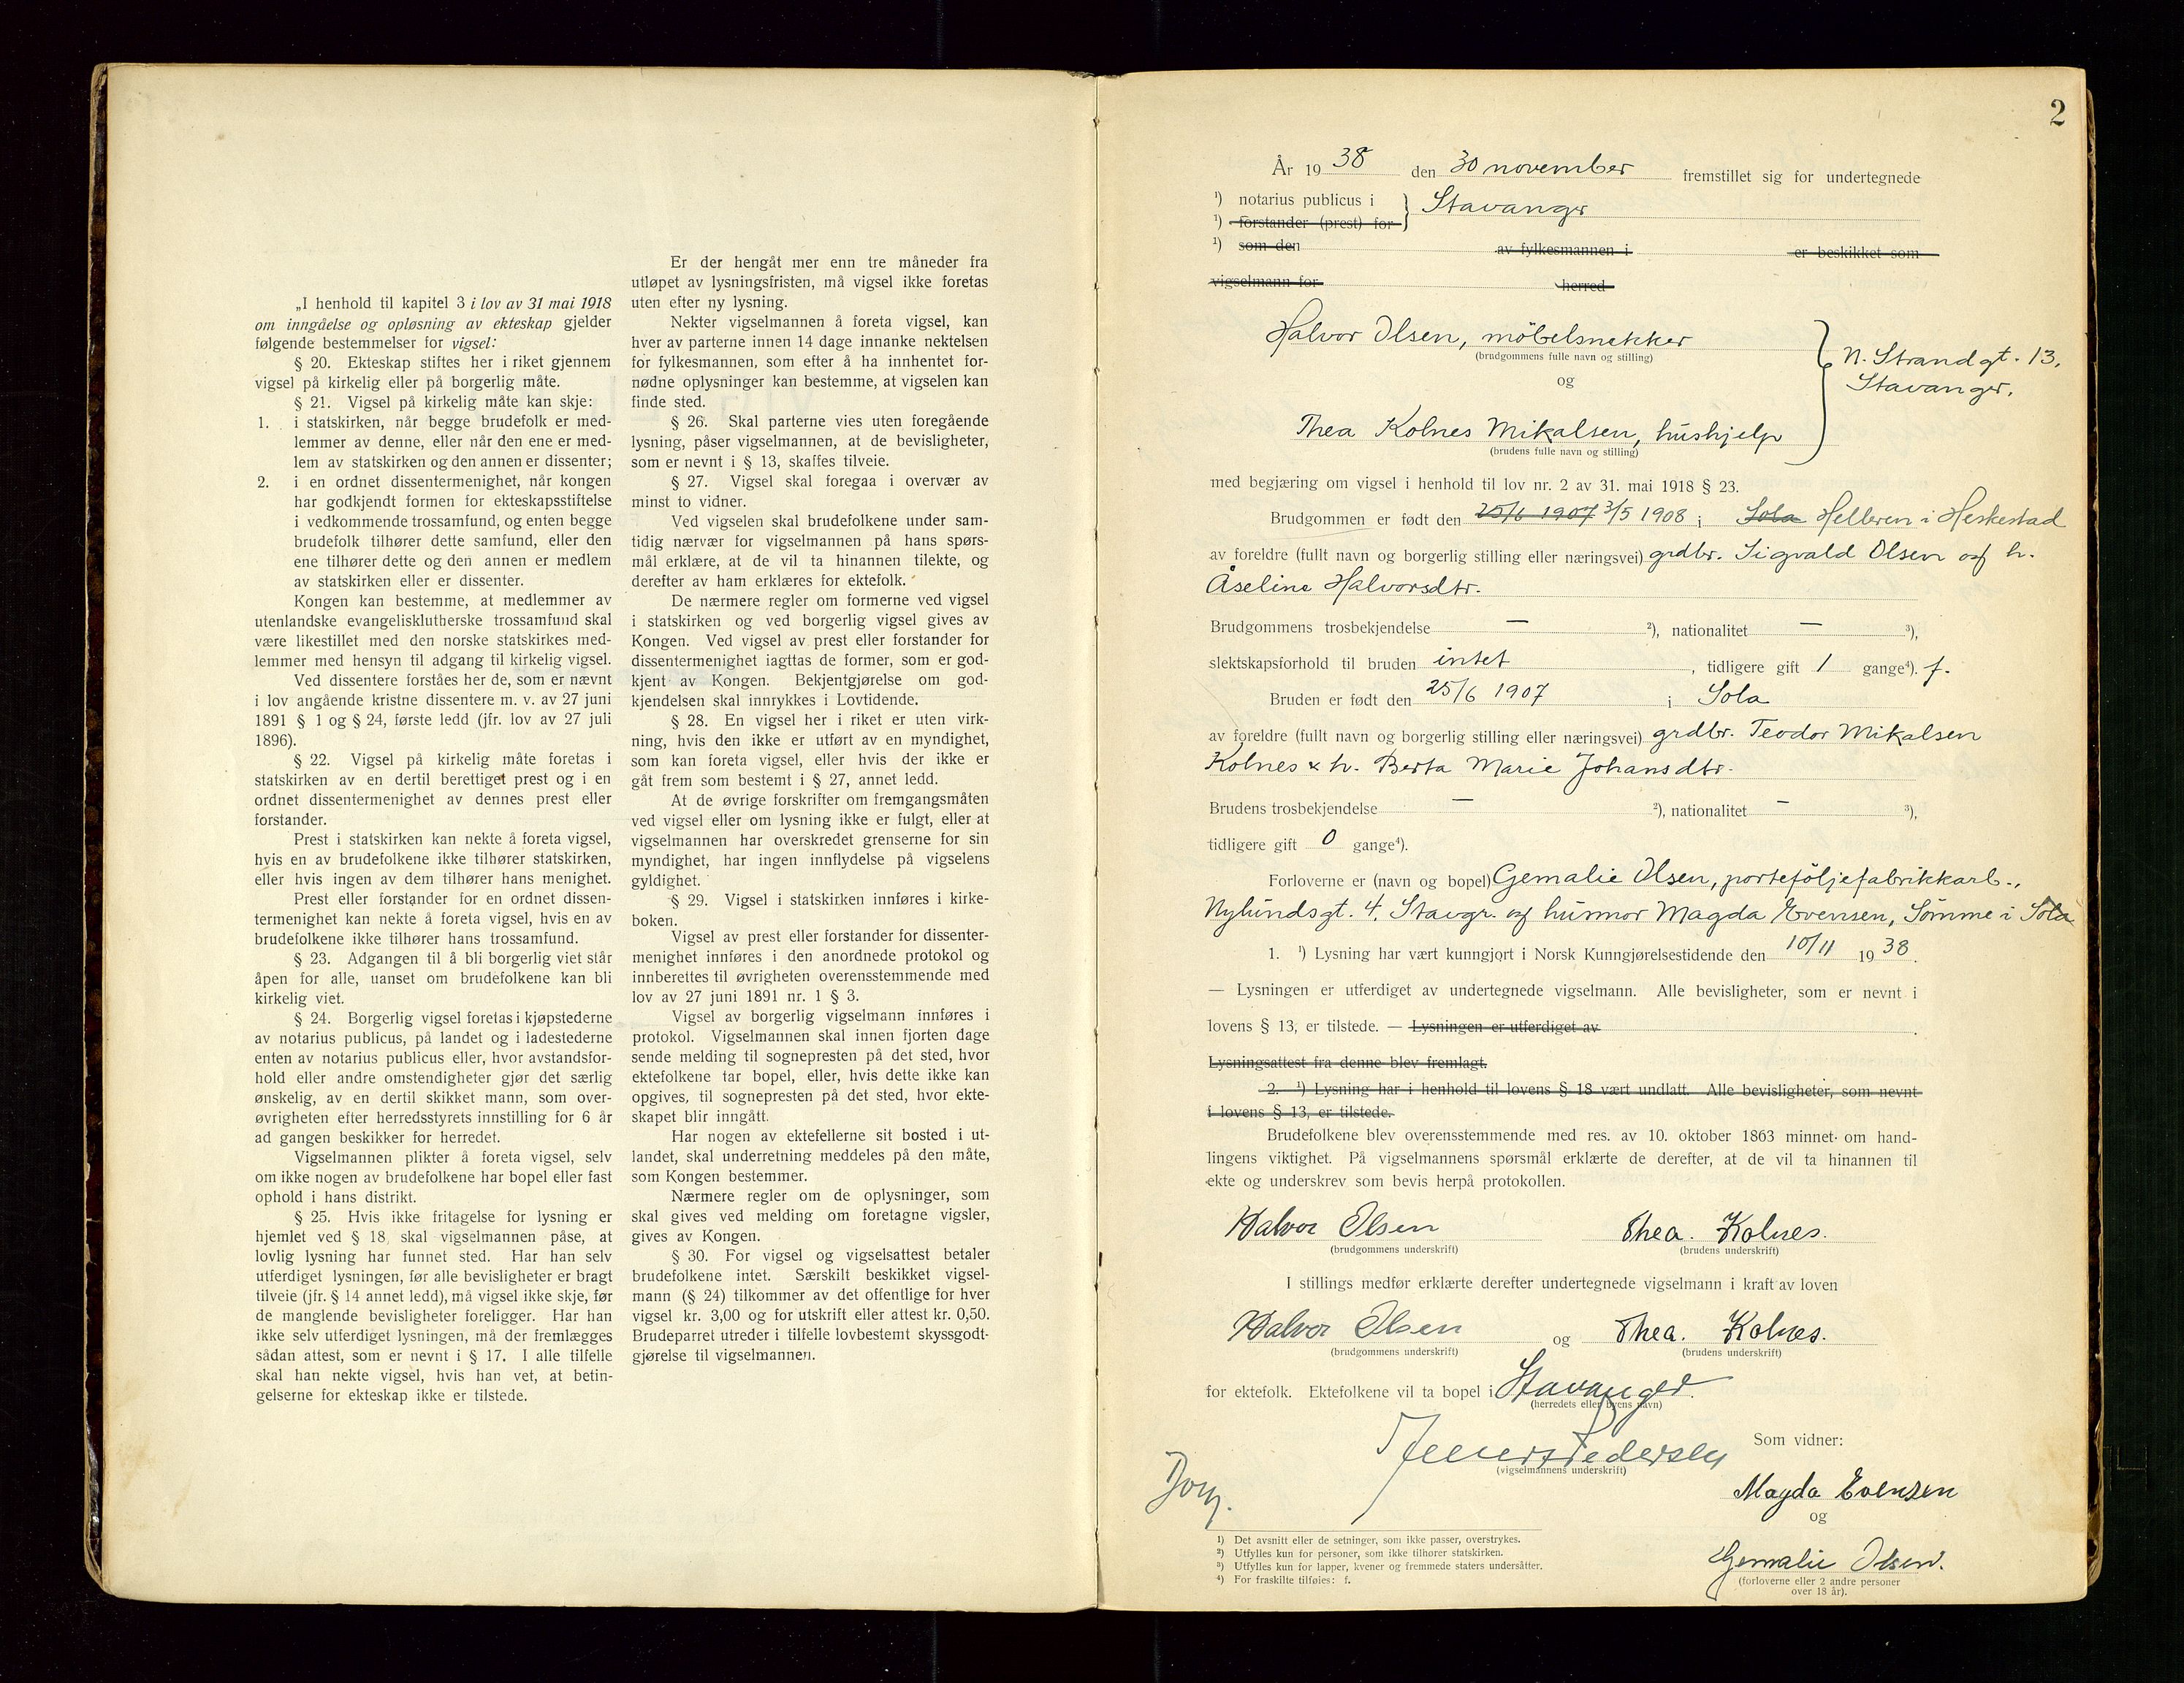 „I henhold til kapitel 3 i lov av 31 mai 1918
om inngåelse og opløsning av ekteskap gjelder
følgende bestemmelser for vigsel:
§ 20. Ekteskap stiftes her i riket gjennem
vigsel på kirkelig eller på borgerlig måte.
§ 21. Vigsel på kirkelig måte kan skje:
1. i statskirken, når begge brudefolk er med-
lemmer av denne, eller når den ene er med-
lem av statskirken og den annen er dissenter;
2. i en ordnet dissentermenighet, når kongen
har godkjendt formen for ekteskapsstiftelse
i vedkommende trossamfund, og enten begge
brudefolk tilhører dette samfund, eller den
ene tilhører dette og den annen er medlem
av statskirken eller er dissenter.
Kongen kan bestemme, at medlemmer av
utenlandske evangelisklutherske trossamfund skal
være likestillet med den norske statskirkes med-
lemmer med hensyn til adgang til kirkelig vigsel.
Ved dissentere forståes her de, som er nævnt
i lov angående kristne dissentere m. v. av 27 juni
1891 § 1 og § 24, første ledd (jfr. lov av 27 juli
1896).
§ 22. Vigsel på kirkelig måte foretas i
statskirken av en dertil berettiget prest og i en
ordnet dissentermenighet av dennes prest eller
forstander.
Prest i statskirken kan nekte å foreta vigsel,
hvis en av brudefolkene ikke tilhører statskirken,
eller hvis ingen av dem tilhører hans menighet.
Prest eller forstander for en ordnet dissen-
termenighet kan nekte å foreta vigsel, hvis en av
brudefolkene ikke tilhører hans trossamfund.
§ 23. Adgangen til å bli borgerlig viet står
åpen for alle, uanset om brudefolkene kan bli
kirkelig viet.
§ 24. Borgerlig vigsel foretas i kjøpstederne
av notarius publicus, på landet og i ladestederne
enten av notarius publicus eller, hvor avstandsfor-
hold eller andre omstendigheter gjør det særlig
ønskelig, av en dertil skikket mann, som over-
øvrigheten efter herredsstyrets innstilling for 6 år
ad gangen beskikker for herredet.
Vigselmannen plikter å foreta vigsel, selv
om ikke nogen av brudefolkene har bopel eller fast
ophold i hans distrikt.
§ 25. Hvis ikke fritagelse for lysning er
hjemlet ved § 18, skal vigselmannen påse, at
lovlig lysning har funnet sted. Har han selv
utferdiget lysningen, før alle bevisligheter er bragt
tilveie (jfr. § 14 annet ledd), må vigsel ikke skje, før
de manglende bevisligheter foreligger. Har han
ikke selv utferdiget lysningen, må der fremlægges
sådan attest, som er nevnt i § 17. I alle tilfelle
skal han nekte vigsel, hvis han vet, at betin-
gelserne for ekteskap ikke er tilstede.
Er der hengåt mer enn tre måneder fra
utløpet av lysningsfristen, må vigsel ikke foretas
uten efter ny lysning.
Nekter vigselmannen å foreta vigsel, kan
hver av parterne innen 14 dage innanke nektelsen
for fylkesmannen, som efter å ha innhentet for-
nødne oplysninger kan bestemme, at vigselen kan
finde sted.
§ 26. Skal parterne vies uten foregående
lysning, påser vigselmannen, at de bevisligheter,
som er nevnt i § 13, skaffes tilveie.
§ 27. Vigsel skal foregaa i overvær av
minst to vidner.
Ved vigselen skal brudefolkene under sam-
tidig nærvær for vigselmannen på hans spørs-
mål erklære, at de vil ta hinannen tilekte, og
derefter av ham erklæres for ektefolk.
De nærmere regler om formerne ved vigsel
i statskirken og ved borgerlig vigsel gives av
Kongen. Ved vigsel av prest eller forstander for
dissentermenighet iagttas de former, som er god-
kjent av Kongen. Bekjentgjørelse om god-
kjendelsen skal innrykkes i Lovtidende.
§ 28. En vigsel her i riket er uten virk-
ning, hvis den ikke er utført av en myndighet,
som kan foreta vigsel, eller hvis der ikke er
gåt frem som bestemt i § 27, annet ledd.
At de øvrige forskrifter om fremgangsmåten
ved vigsel eller om lysning ikke er fulgt, eller at
vigselmannen har overskredet grenserne for sin
myndighet, har ingen innflydelse på vigselens
gyldighet.
§ 29. Vigsel i statskirken innføres i kirke-
boken.
Vigsel av prest eller forstander for dissenter-
menighet innføres i den anordnede protokol og
innberettes til øvrigheten overensstemmende med
lov av 27 juni 1891 nr. 1 § 3.
Vigsel av borgerlig vigselmann innføres i
protokol. Vigselmannen skal innen fjorten dage
sende melding til sognepresten på det sted, hvor
ektefolkene tar bopel, eller, hvis dette ikke kan
opgives, til sognepresten på det sted, hvor ekte-
skapet blir inngått.
Har nogen av ektefellerne sit bosted i ut-
landet, skal underretning meddeles på den måte,
som Kongen bestemmer.
Nærmere regler om de oplysninger, som
skal gives ved melding om foretagne vigsler,
gives av Kongen.
§ 30. For vigsel og vigselsattest betaler
brudefolkene intet. Særskilt beskikket vigsel-
mann (§ 24) tilkommer av det offentlige for hver
vigsel kr. 3,00 og for utskrift eller attest kr. 0,50.
Brudeparret utreder i tilfelle lovbestemt skyssgodt-
gjørelse til vigselmannen.
2
År 1938 den 30 november fremstillet sig for undertegnede
¹) notarius publicus i } Stavanger
¹) forstander (prest) for
¹) som den av fylkesmannen i er beskikket som
vigselmann for herred
Halvor Olsen, möbelsnekker
(brudgommens fulle navn og stilling)
og
N. Strandgt. 13.
Stavanger.
Thea Kolnes Mikalsen, hushjelp
(brudens fulle navn og stilling)
med begjæring om vigsel i henhold til lov nr. 2 av 31. mai 1918 § 23.
Brudgommen er født den 25/6 1907 3/5 1908 i Sola Helleren i Heskestad
av foreldre (fullt navn og borgerlig stilling eller næringsvei) grdbr. Sigvald Olsen og h.
Åseline Halvorsdtr.
Brudgommens trosbekjendelse — ²), nationalitet — ³),
slektskapsforhold til bruden intet, tidligere gift 1 gange⁴). f.
Bruden er født den 25/6 1907 i Sola
av foreldre (fullt navn og borgerlig stilling eller næringsvei) grdbr. Teodor Mikalsen
Kolnes & h. Berta Marie Johansdtr.
Brudens trosbekjendelse — ²), nationalitet — ³),
tidligere gift 0 gange⁴).
Forloverne er (navn og bopel) Gemalie Olsen, porteföljefabrikkarb.,
Nylundsgt. 4, Stavgr. og husmor Magda Evensen, Sømme i Sola
1. ¹) Lysning har vært kunngjort i Norsk Kunngjørelsestidende den 10/11 1938.
— Lysningen er utferdiget av undertegnede vigselmann. Alle bevisligheter, som er nevnt i
lovens § 13, er tilstede. — Lysningen er utferdiget av .
Lysningsattest fra denne blev fremlagt.
2. ¹) Lysning har i henhold til lovens § 18 vært undlatt. Alle bevisligheter, som nevnt
i lovens § 13, er tilstede.
Brudefolkene blev overensstemmende med res. av 10. oktober 1863 minnet om hand-
lingens viktighet. På vigselmannens spørsmål erklærte de derefter, at de vil ta hinannen til
ekte og underskrev som bevis herpå protokollen.
Halvor Olsen Thea. Kolnes.
(brudgommens underskrift) (brudens underskrift)
I stillings medfør erklærte derefter undertegnede vigselmann i kraft av loven
Halvor Olsen og Thea. Kolnes.
(brudgommens underskrift) (brudens underskrift)
for ektefolk. Ektefolkene vil ta bopel i Stavanger.
(herredets eller byens navn)
Som vidner:
(vigselmannens underskrift)
Magda Evensen
og
Gemalie Olsen.
(forloverne eller 2 andre personer
over 18 år).
¹) Det avsnitt eller de setninger, som ikke passer, overstrykes.
²) Utfylles kun for personer, som ikke tilhører statskirken.
³) Utfylles kun for lapper, kvener og fremmede staters undersåtter.
⁴) For fraskilte tilføies: f.